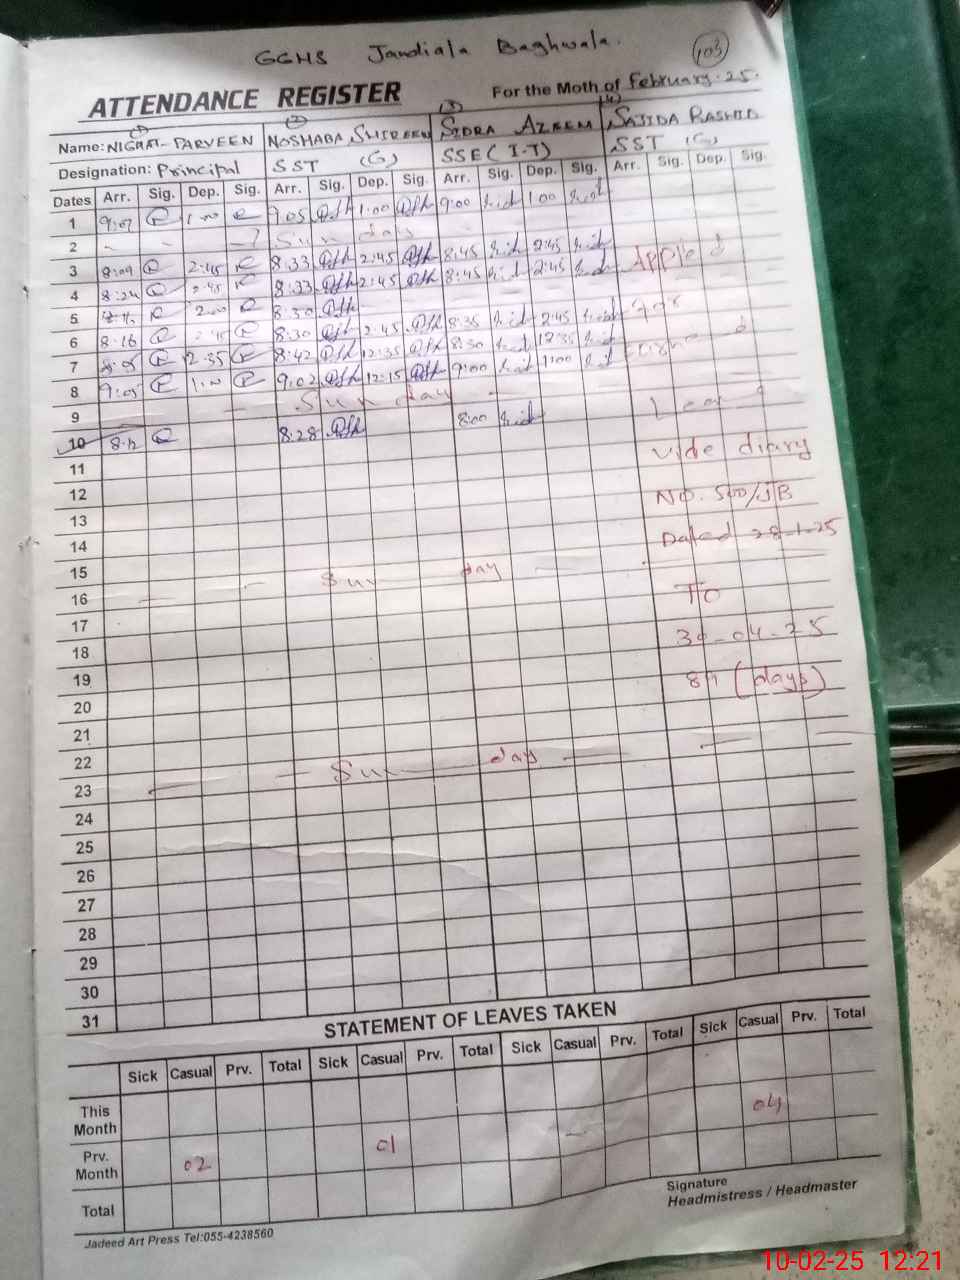 GGHS Jandiala Baghwala.
103
ATTENDANCE REGISTER For the Moth of February-25.
(1) (2) (3) (4)
Name: NIGHAT-PARVEEN NOSHABA SHIREEN SIDRA AZEEM SAJIDA RASHID
Designation: Principal SST (G) SSE (I-T) SST (G)
Dates Arr. Sig. Dep. Sig. Arr. Sig. Dep. Sig. Arr. Sig. Dep. Sig. Arr. Sig. Dep. Sig.
1 9:07 9:05 1:00 9:00 1:00
2 Sunday
3 8:09 2:45 8:33 2:45 8:45 2:45 Applied
4 8:24 2:45 8:33 2:45 8:45 2:45
5 2:00 8:30 for
6 8:16 2:45 8:30 2:45 8:35 2:45
7 8:05 12:35 8:42 12:35 8:30 12:35 Earned
8 9:05 1:00 9:02 12:15 9:00 1:00
9 Sunday Leave
10 8:12 8:28 8:00
11 vide diary
12
13 No. 500/JB
14 Dated 28-1-25
15
16 Sunday To
17
18 30-04-25
19
20 (days)
21
22
23 Sunday
24
25
26
27
28
29
30
31
STATEMENT OF LEAVES TAKEN
Sick Casual Prv. Total Sick Casual Prv. Total Sick Casual Prv. Total Sick Casual Prv. Total
This Month 04
Prv. Month 02 01
Total
Signature
Headmistress / Headmaster
Jadeed Art Press Tel:055-4238560
10-02-25 12:21